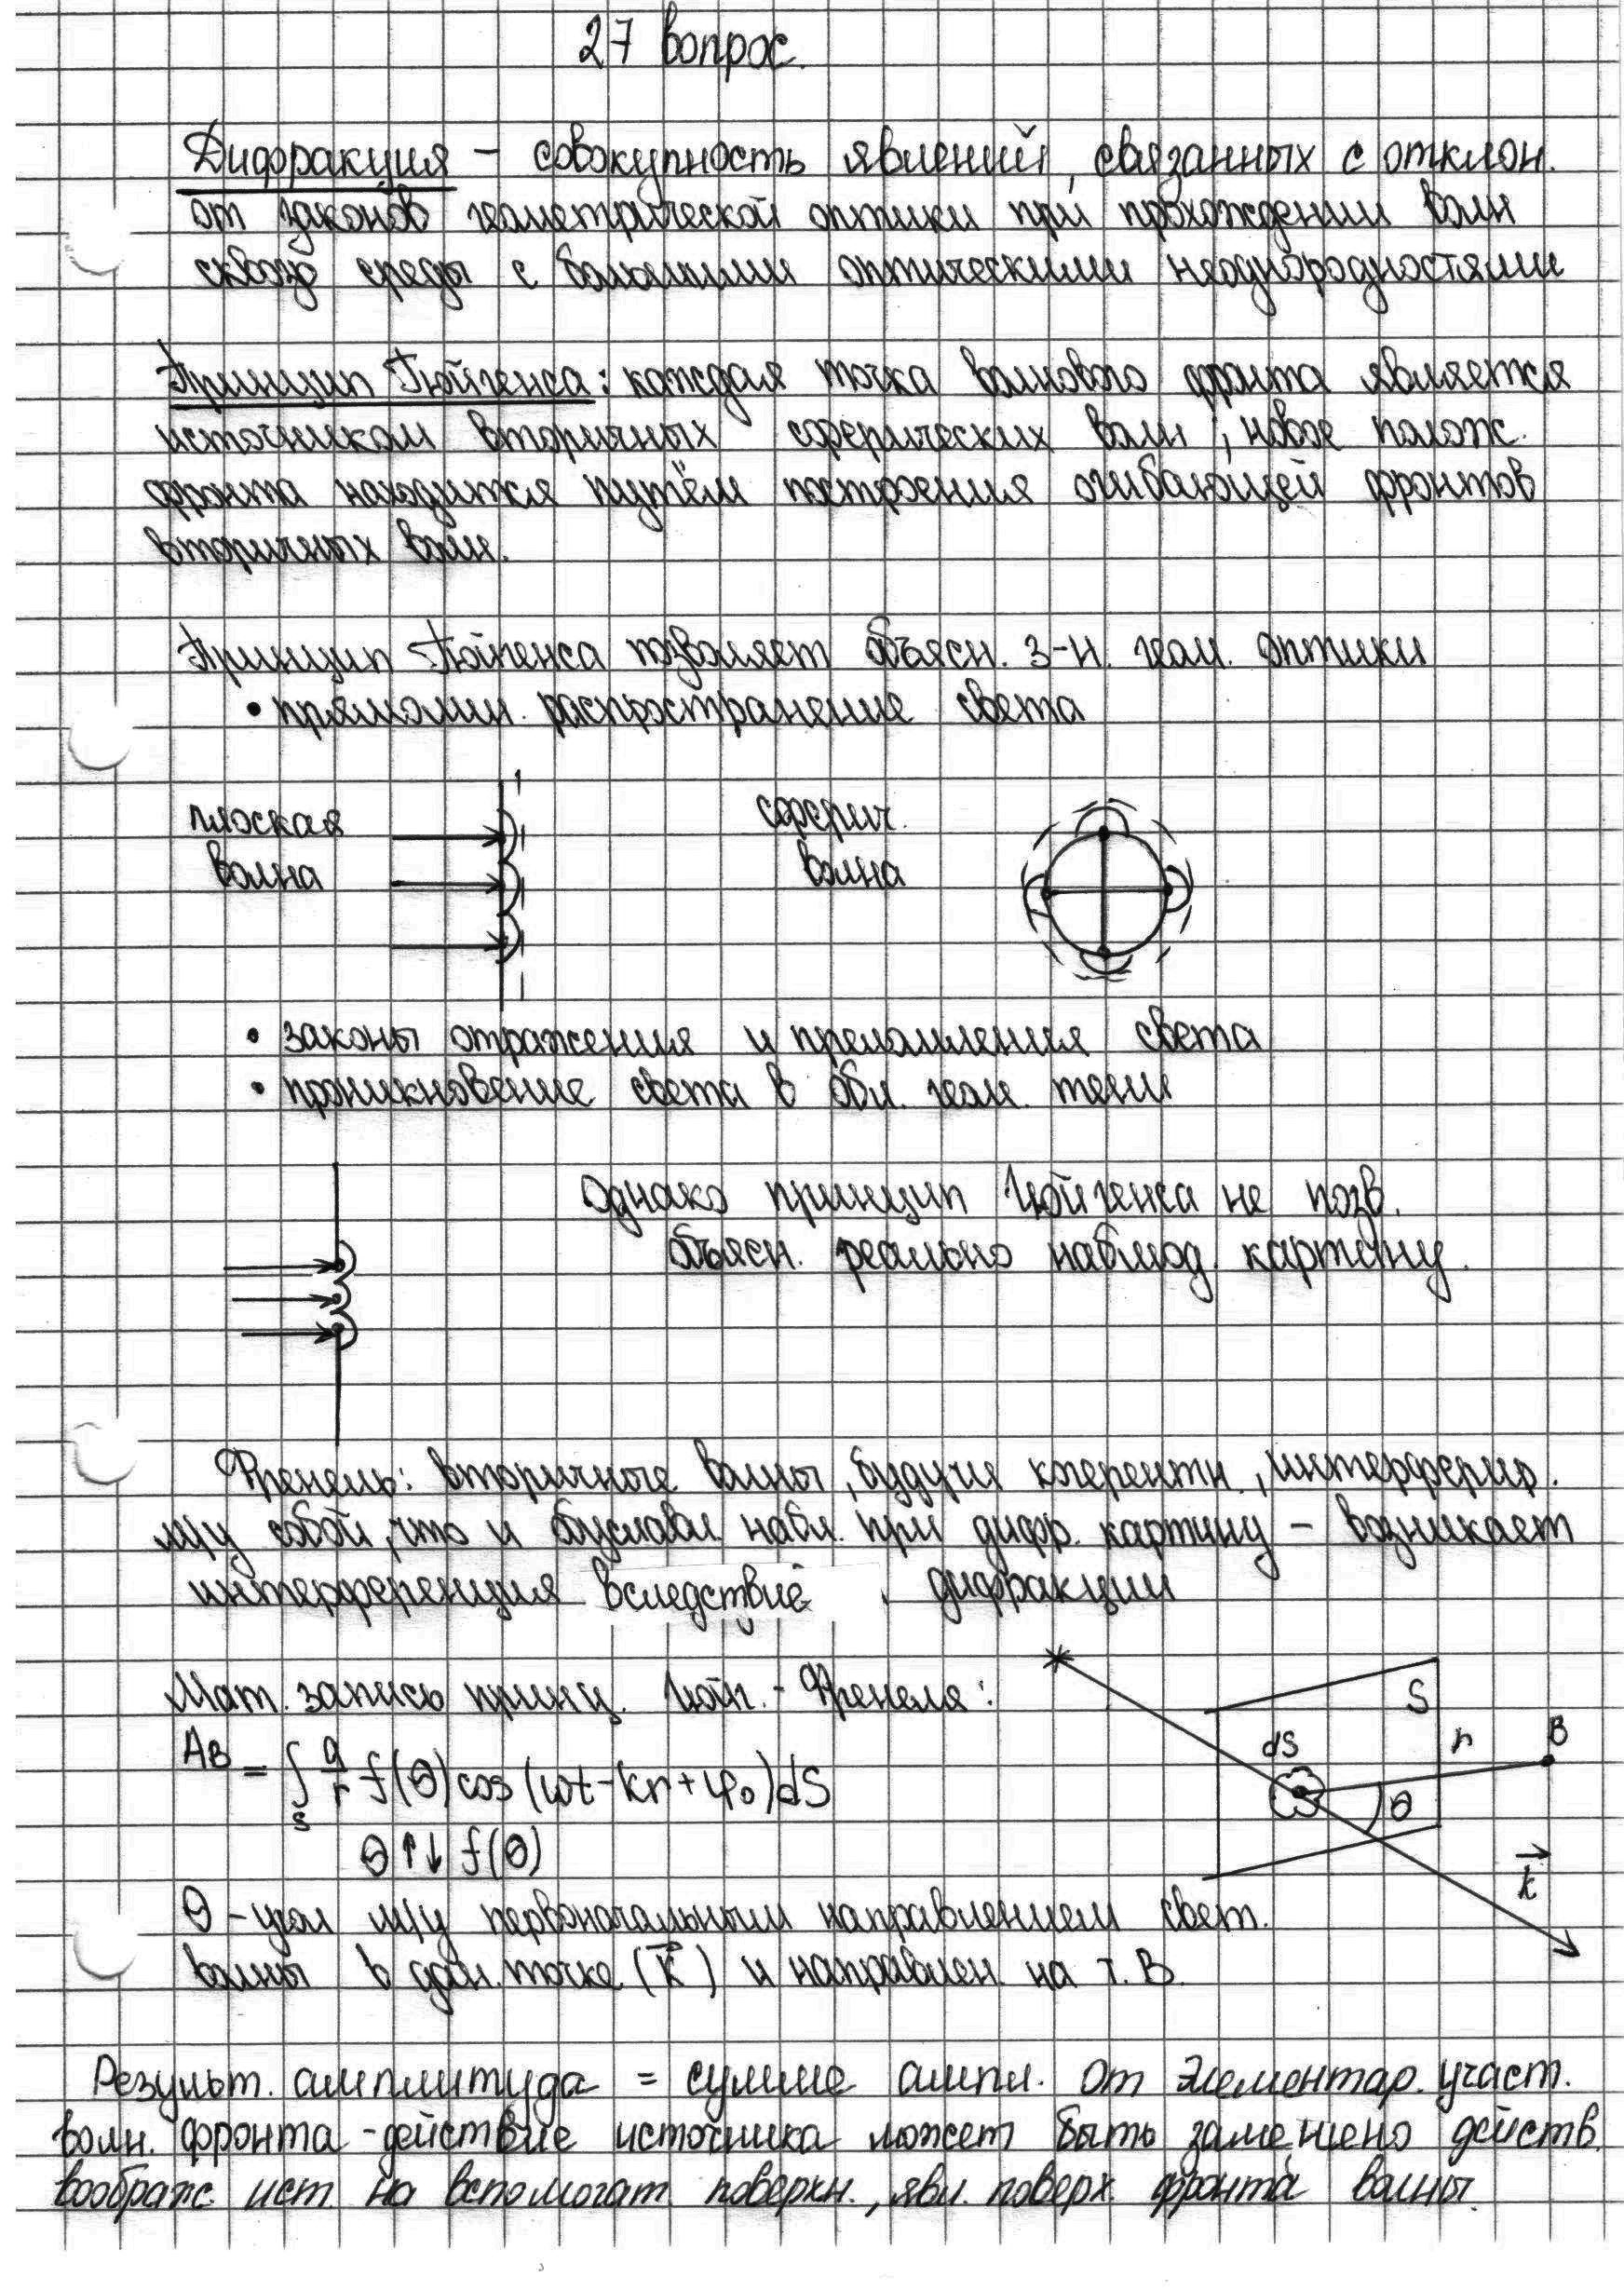 27 вопрос.
Дифракция – совокупность явлений, связанных с отклон.
от законов геометрической оптики при прохождении волн
сквозь среды с большими оптическими неоднородностями
Принцип Гюйгенса: каждая точка волнового фронта является
источником вторичных сферических волн, новое полож.
фронта находится путём построения огибающей фронтов
вторичных волн.
Принцип Гюйгенса позволяет объясн. з-н. геом. оптики
• прямолин. распространение света
плоская волна
сферич. волна
• законы отражения и преломления света
• проникновение света в обл. геом. тени
Однако принцип Гюйгенса не позв.
объясн. реально наблюд. картину.
Френель: вторичные волны, будучи когерентн., интерферир.
м/у собой, что и обуславл. набл. при дифр. картину – возникает
интерференция вследствие дифракции
Мат. запись принц. Гюйг. - Френеля:
A_B = ∫_S a/r f(θ) cos (ωt - kr + φ₀) dS
θ↑↓ f(θ)
S
dS
r
B
θ
k⃗
θ – угол м/у первоначальным направлением свет.
волны в дан. точке (k⃗) и направлен. на т. B.
Результ. амплитуда = сумме ампл. от элементар. участ.
волн. фронта - действие источника может быть замещено действ.
воображ. ист. на вспомогат поверхн., явл. поверх. фронта волны.